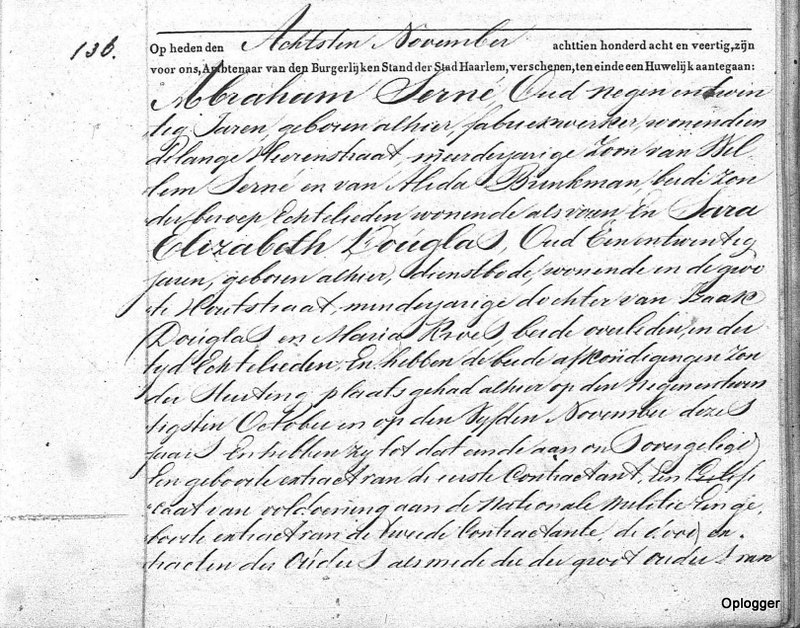 136.
Op heden den Achtsten November achttien honderd acht en veertig, zijn
voor ons, Ambtenaar van den Burgerlijken Stand der Stad Haarlem, verschenen, ten einde een Huwelijk aantegaan:
Abraham Serné, Oud negen en twin
tig Jaren, geboren alhier, fabriekwerker, wonende in
de lange Heerenstraat, meerderjarige Zoon van Wil-
lem Serné en van Alida Brinkman, beide Zon
der beroep Echtelieden wonende als voren, En Sara
Elizabeth Douglas, Oud Een en twentig
jaren, geboren alhier, dienstbode, wonende in de groo
te Houtstraat, minderjarige dochter van Izaak
Douglas en Maria Kroes, beide overleden, in der
tyd Echtelieden. En hebben de beide afkondigingen Zon
der Stuiting, plaats gehad alhier op den Negen en twin
tigsten October en op den Vyfden November dezes
jaars En hebben zy tot dat einde aan ons overgelegd
Een geboorte extract van de eerste Contractant, Een Certifi
caat van voldoening aan de Nationale Militie Een ge-
boorte extract van de tweede Contractante de dood ex-
tracten der Ouders alsmede die der groot ouders van
Oplogger